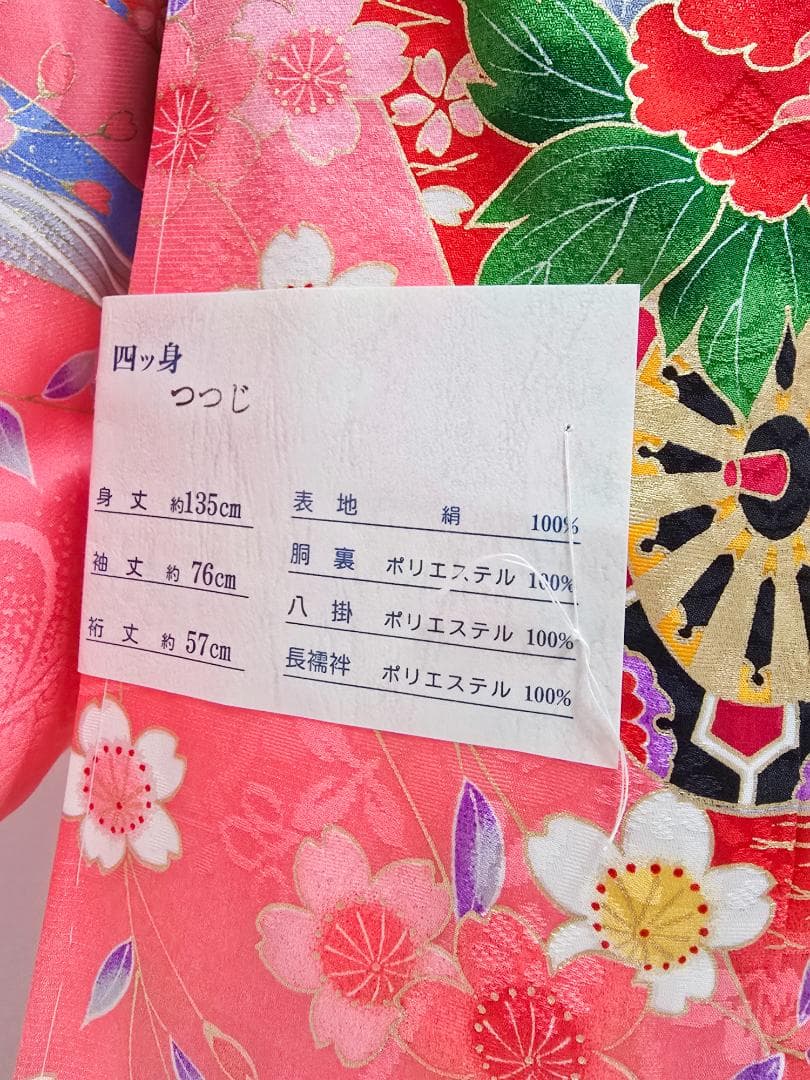 四ッ身
つつじ
身丈 約135cm
袖丈 約 76cm
裄丈 約 57cm
表地 絹 100%
胴裏 ポリエステル 100%
八掛 ポリエステル 100%
長襦袢 ポリエステル 100%